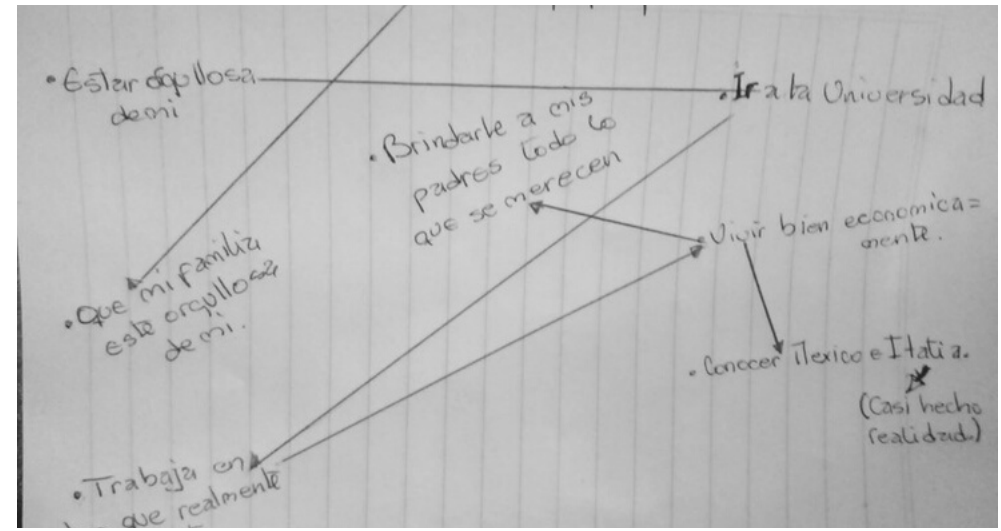 • Estar orgullosa
de mi
• Ir a la Universidad
• Brindarle a mis
padres todo lo
que se merecen
• Vivir bien economica=
mente.
• Que mi familia
este orgullosa
de mi.
• Conocer Mexico e Italia.
(Casi hecho
realidad.)
• Trabaja en
que realmente